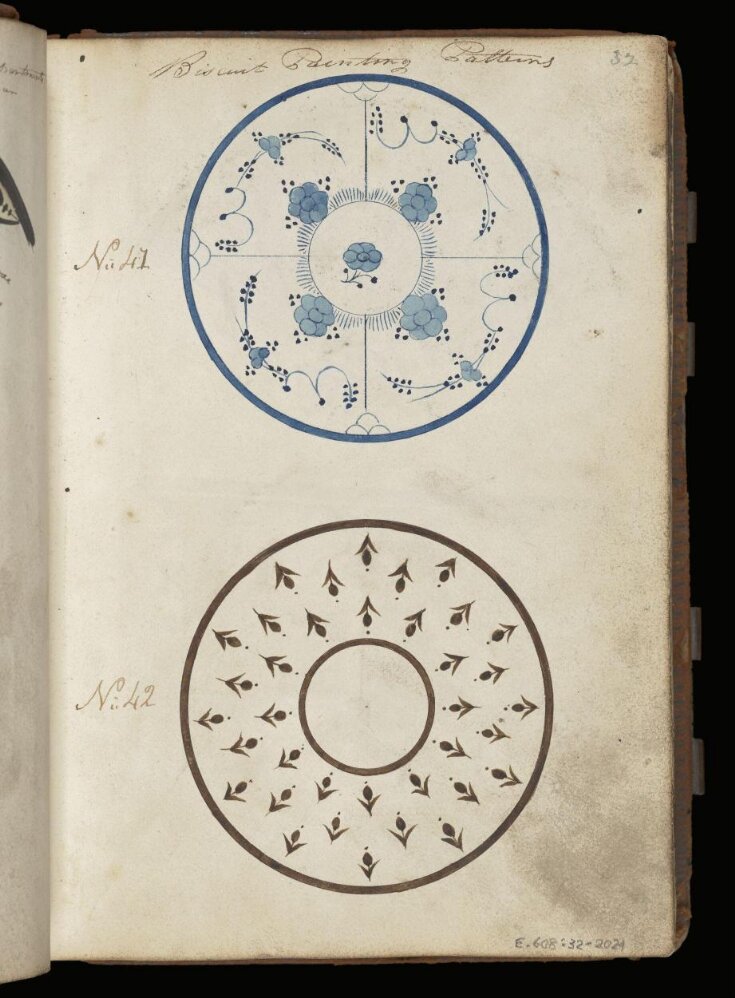 Biscuit Painting Patterns
32
No: 41
No: 42
E.608:32-2021